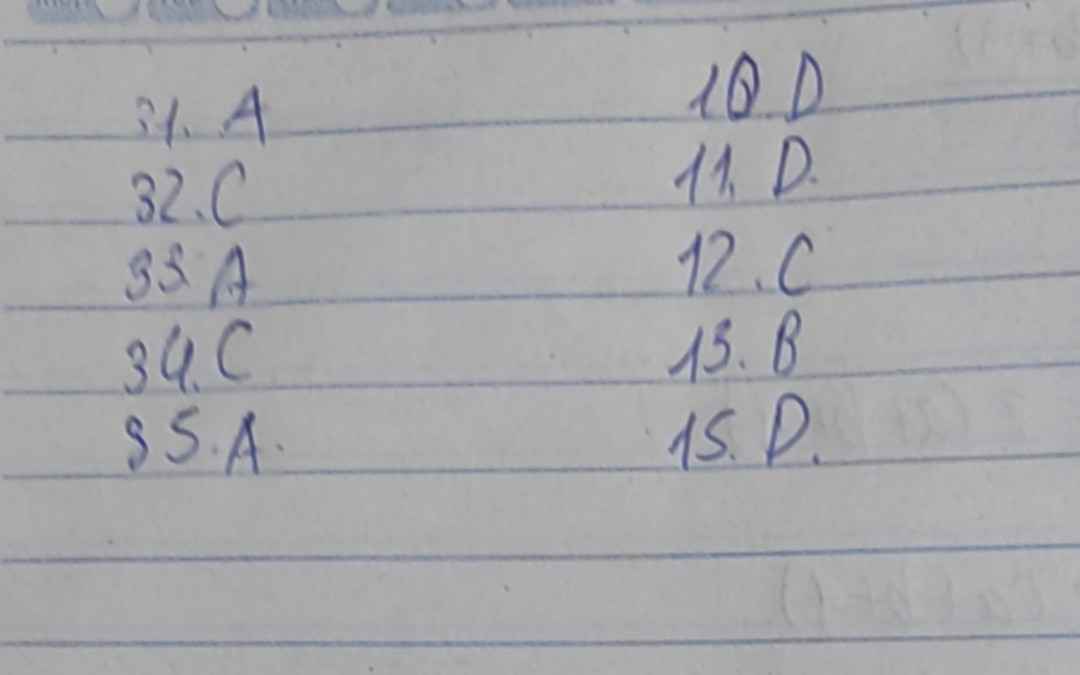 31. A
32. C
33. A
34. C
35. A.
10 D
11. D.
12. C
13. B
15. D.